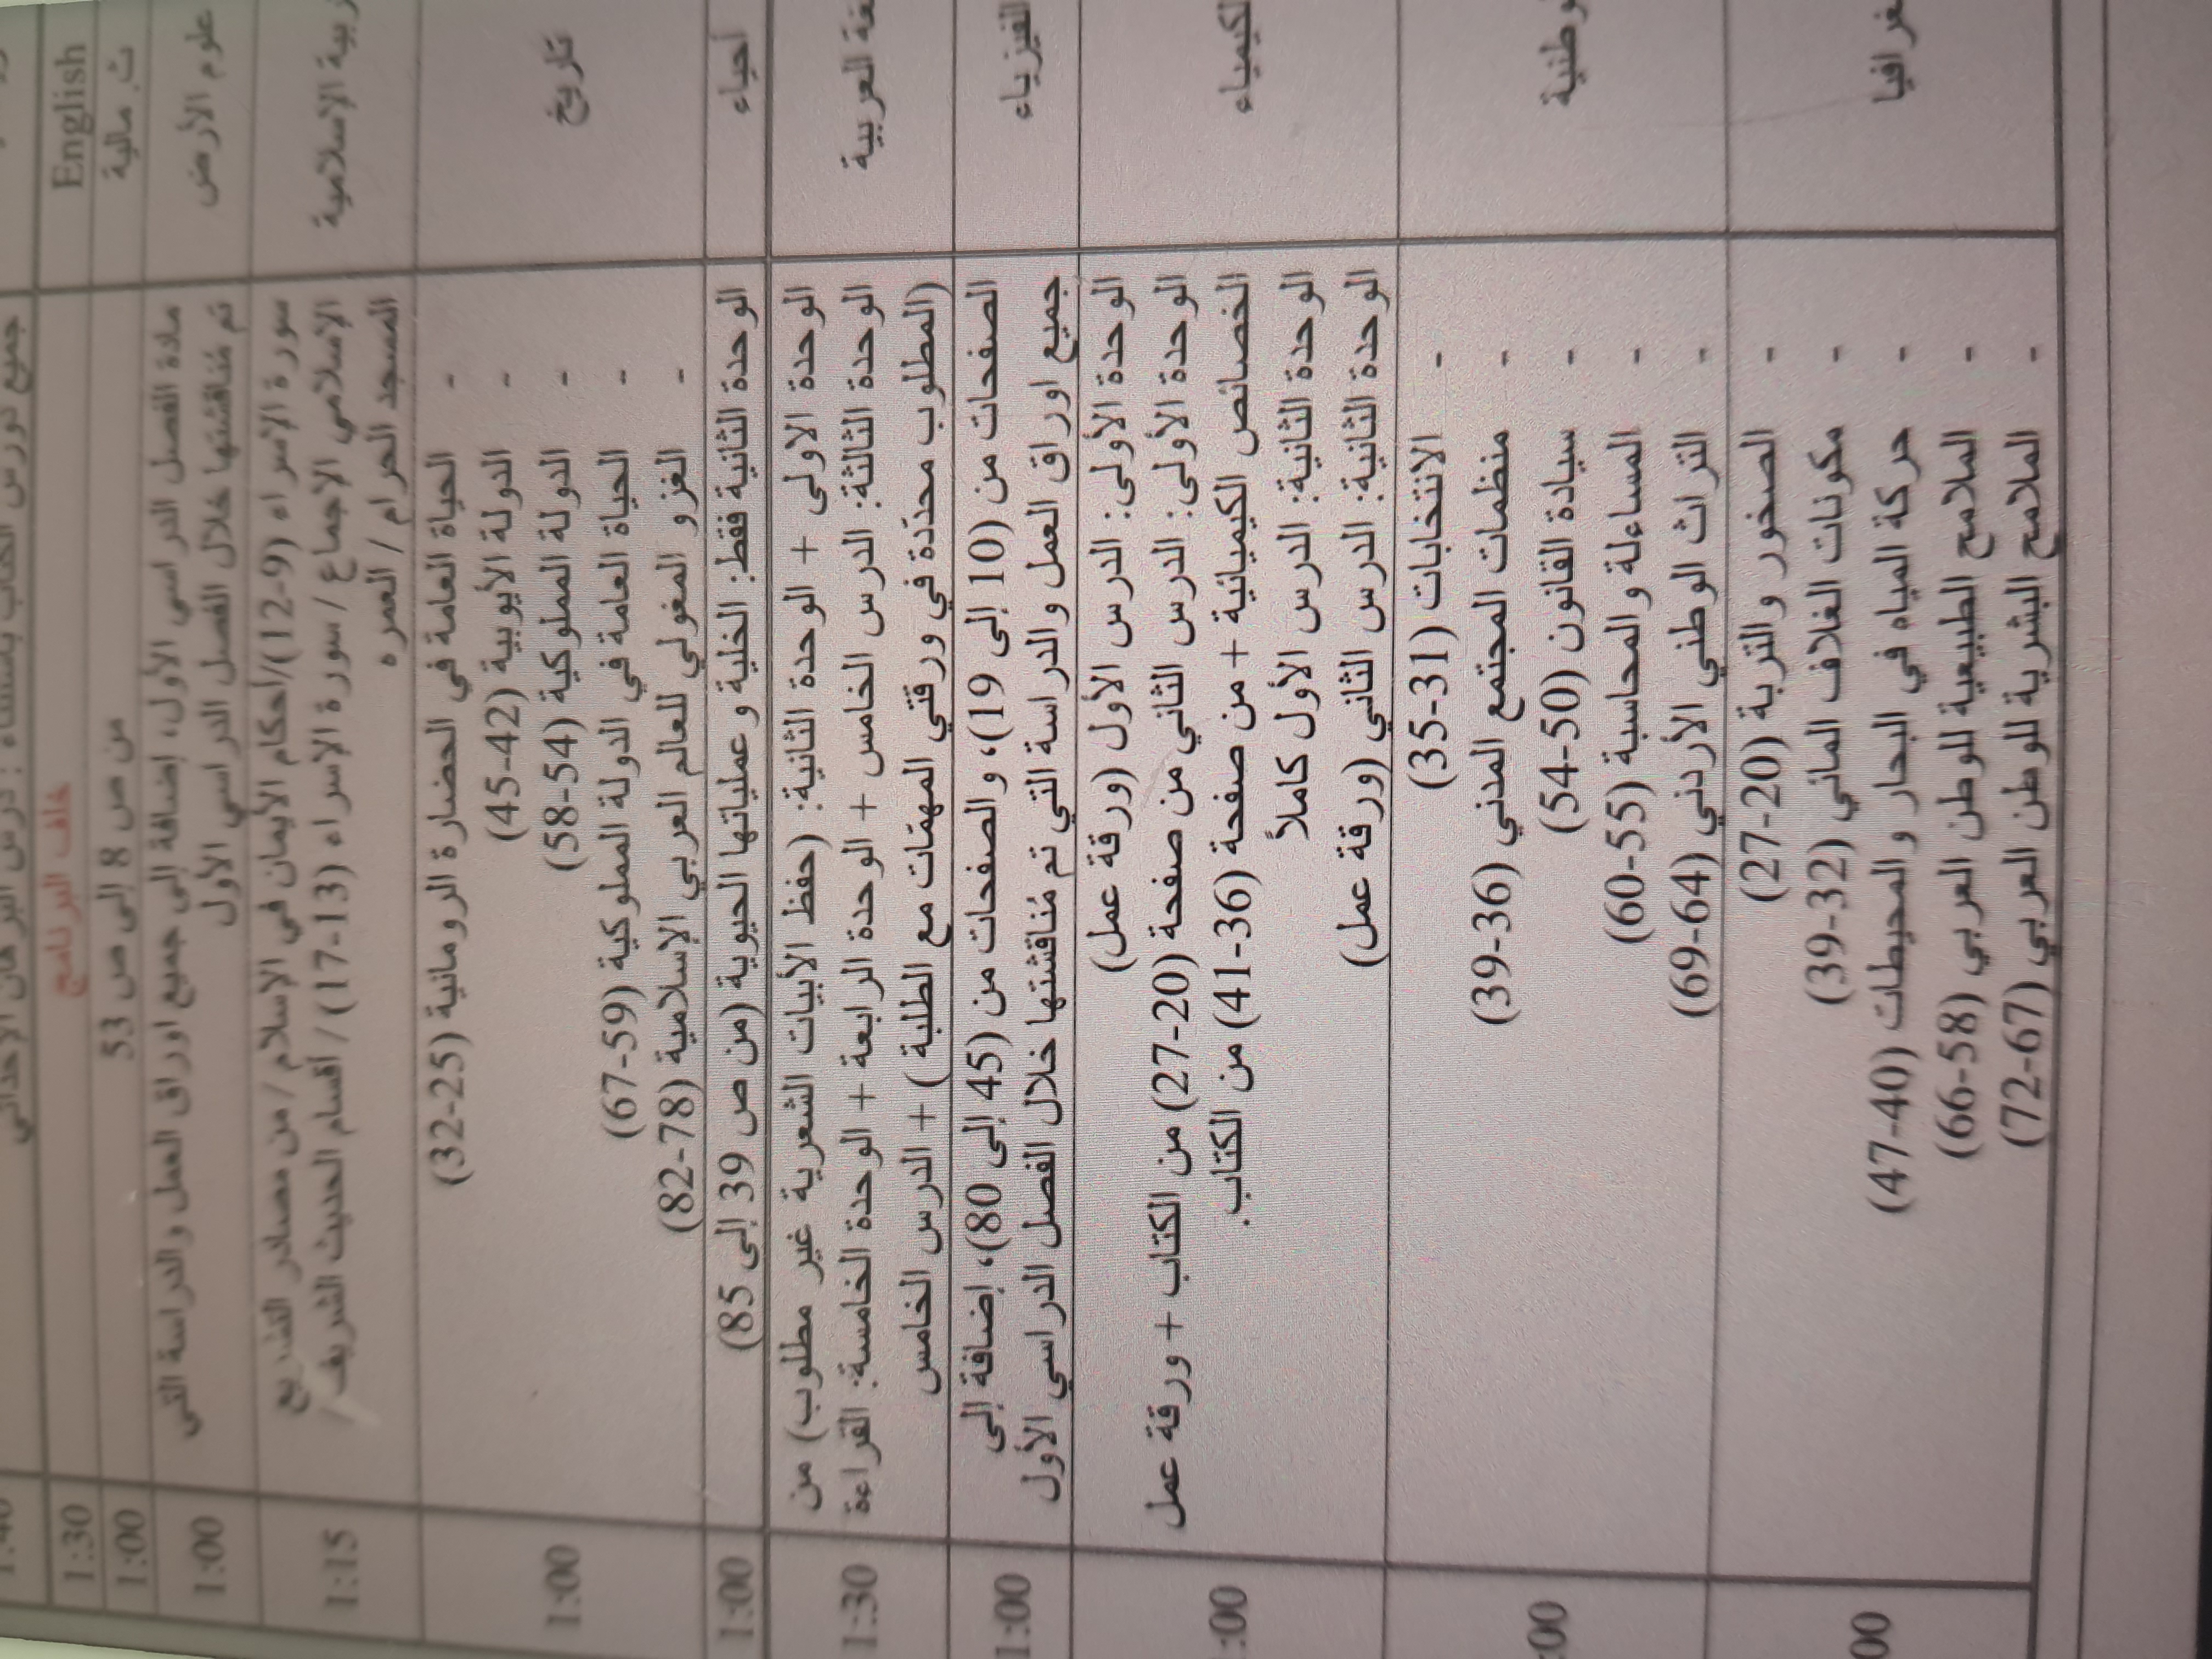 جميع دورس الكتاب باستثناء : درس البرهان الإحداثي
1:40
English
خلف البرنامج
1:30
ث. مالية
من ص 8 إلى ص 53
1:00
علوم الأرض
مادة الفصل الدراسي الأول، إضافة إلى جميع اوراق العمل والدراسة التي
تم مُناقشتها خلال الفصل الدراسي الأول
1:00
الإسلامية
سورة الإسراء (9-12)/أحكام الأيمان في الإسلام / من مصادر التشريع
الإسلامي الاجماع / سورة الإسراء (13-17) / أقسام الحديث الشريف/
المسجد الحرام / العمره
1:15
تاريخ
- الحياة العامة في الحضارة الرومانية (25-32)
- الدولة الأيوبية (42-45)
- الدولة المملوكية (54-58)
- الحياة العامة في الدولة المملوكية (59-67)
- الغزو المغولي للعالم العربي الإسلامية (78-82)
1:00
أحياء
الوحدة الثانية فقط: الخلية وعملياتها الحيوية (من ص 39 إلى 85)
1:00
العربية
الوحدة الاولى + الوحدة الثانية: (حفظ الأبيات الشعرية غير مطلوب) من
الوحدة الثالثة: الدرس الخامس + الوحدة الرابعة + الوحدة الخامسة: القراءة
(المطلوب محدّدة في ورقتي المهمّات مع الطلبة ) + الدرس الخامس
1:30
الفيزياء
الصفحات من (10 إلى 19)، والصفحات من (45 إلى 80)، إضافة إلى
جميع اوراق العمل والدراسة التي تم مُناقشتها خلال الفصل الدراسي الأول
1:00
الكيمياء
الوحدة الأولى: الدرس الأول (ورقة عمل)
الوحدة الأولى: الدرس الثاني من صفحة (20-27) من الكتاب + ورقة عمل
الخصائص الكيميائية + من صفحة (36-41) من الكتاب.
الوحدة الثانية: الدرس الأول كاملاً
الوحدة الثانية: الدرس الثاني (ورقة عمل)
:00
وطنية
- الانتخابات (31-35)
- منظمات المجتمع المدني (36-39)
- سيادة القانون (50-54)
- المساءلة والمحاسبة (55-60)
- التراث الوطني الأردني (64-69)
:00
غرافيا
- الصخور والتربة (20-27)
- مكونات الغلاف المائي (32-39)
- حركة المياه في البحار والمحيطات (40-47)
- الملامح الطبيعية للوطن العربي (58-66)
- الملامح البشرية للوطن العربي (67-72)
00